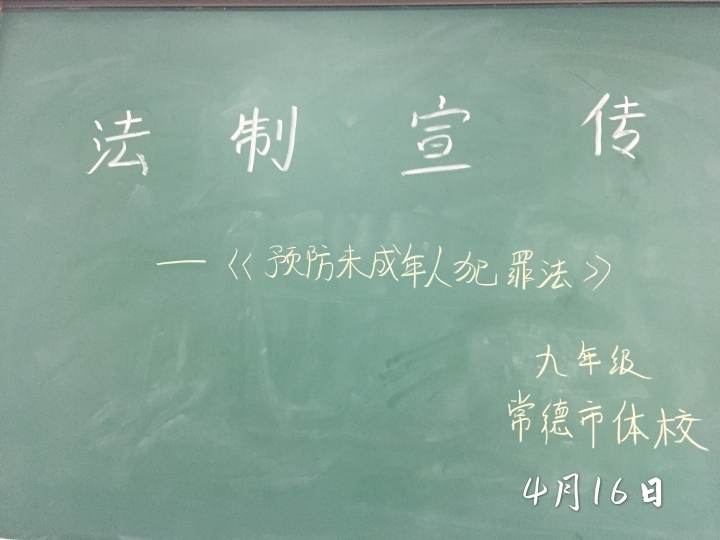 法制宣传
—《预防未成年人犯罪法》
九年级
常德市体校
4月16日